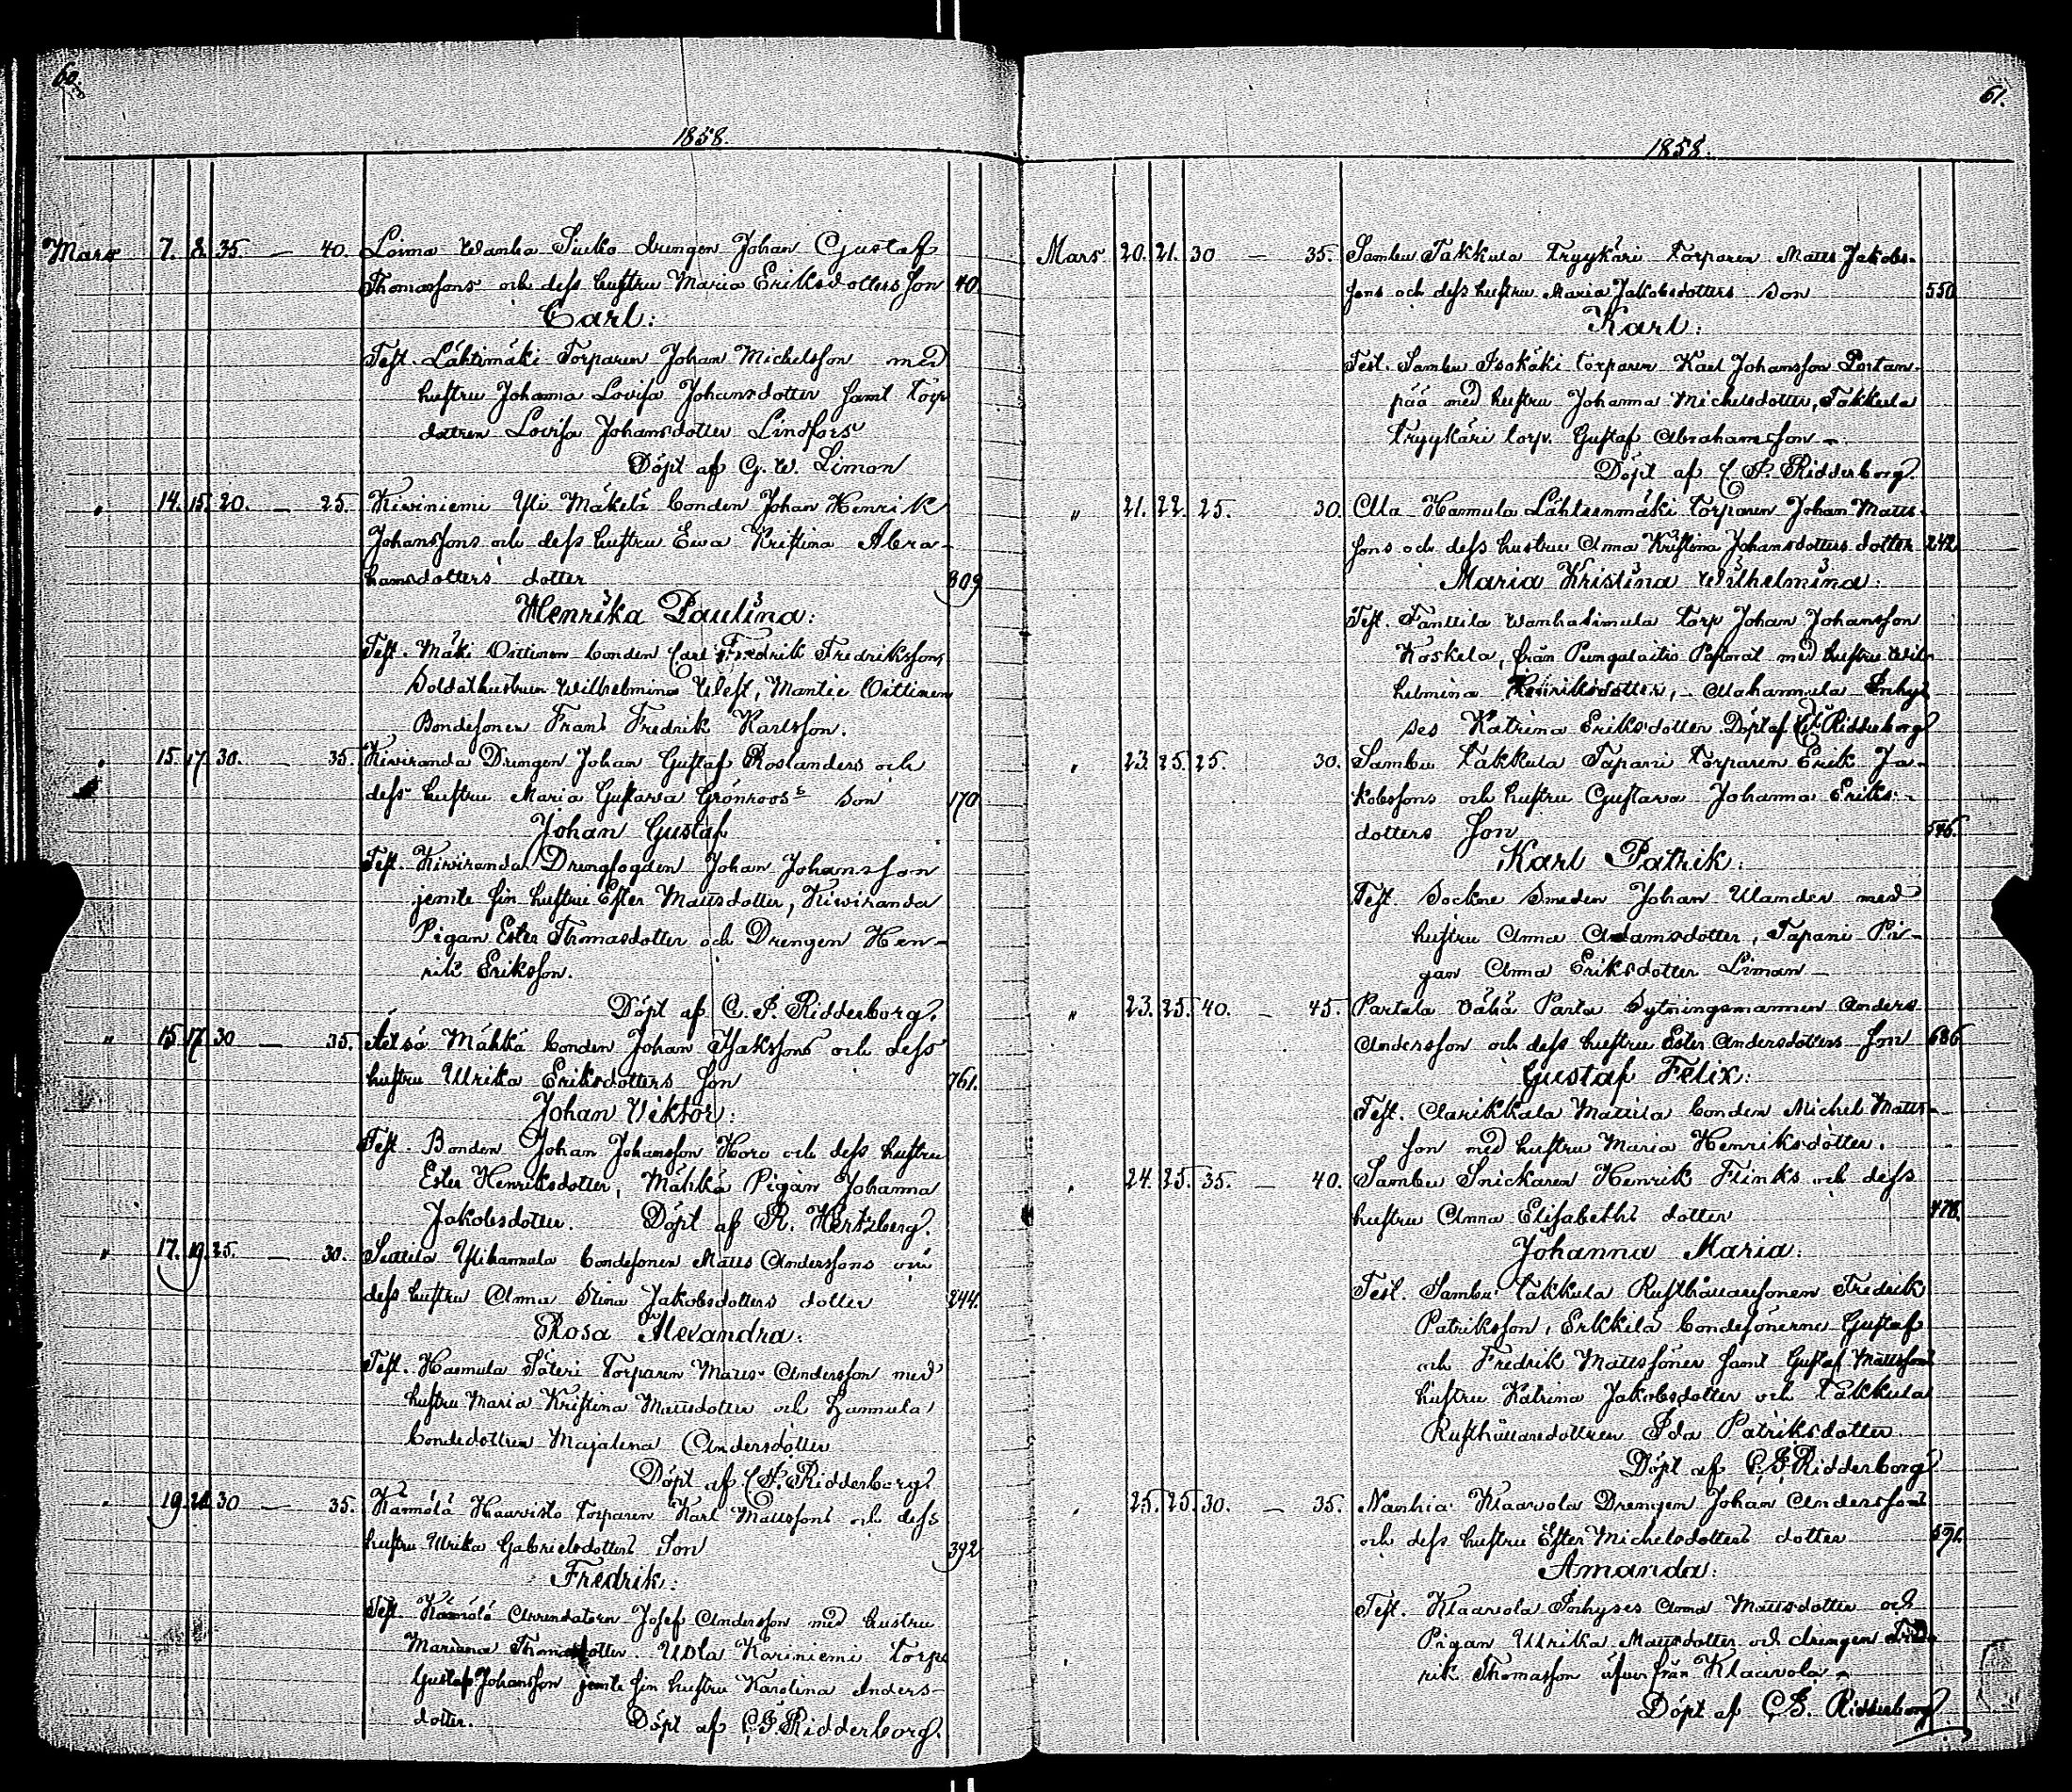 60.
1858.
Mars 7. 8. 35. — 40. Loima Wanha Sucko drengen Johan Gustaf
Thomassons och dess hustru Maria Eriksdotters son 40
Carl:
Test. Lähtimäki Torparen Johan Michelsson med
hustru Johanna Lovisa Johansdotter samt torp
dottren Lovisa Johansdotter Lindfors
Döpt af G. W. Liman
" 14. 15. 20. — 25. Kiviniemi Yli Mäkelä bonden Johan Henrik
Johanssons och dess hustru Ewa Kristina Abra-
hamsdotters dotter 809
Henrika Paulina:
Test. Mäki Oittinen bonden Carl Fredrik Fredriksson,
Soldathustrun Wilhelmina West, Oittinen
Bondesonen Frans Fredrik Karlsson.
" 15. 17. 30. — 35. Kiviranda Drengen Johan Gustaf Roslanders och
dess hustru Maria Gustava Grönroos's son 170
Johan Gustaf
Test. Kiviranda Drengfogden Johan Johansson
jemte sin hustru Ester Mattsdotter, Kiviranda
Pigan Ester Thomasdotter och Drengen Hen-
rik Eriksson.
Döpt af C. J. Ridderborg.
" 15 17 30 — 35. Mähkä bonden Johan Isakssons och dess
hustru Ulrika Eriksdotters son 761.
Johan Viktor:
Test. Bonden Johan Johansson Horo och dess hustru
Ester Henriksdotter, Mähkä Pigan Johanna
Jakobsdotter. Döpt af R. Hertzberg.
" 17. 19. 25. — 30. Ylihannula bondesonen Matts Anderssons och
dess hustru Anna Stina Jakobsdotters dotter 244.
Rosa Alexandra:
Test. Hannula Säteri Torparen Matts Andersson med
hustru Maria Kristina Mattsdotter och Hannula
bondedottren Majalena Andersdotter
Döpt af C. J. Ridderborg
" 19. 21. 30 — 35. Kännölä Haavisto torparen Karl Mattssons och dess
hustru Ulrika Gabrielsdotters Son 392
Fredrik:
Test. Kännölä Arrendatorn Josef Andersson med hustru
Mariana Thomasdotter. Uola Kariniemi torp.
Gustaf Johansson jemte sin hustru Karolina Anders-
dotter. Döpt af C. J. Ridderborg.
61.
1858.
Mars 20. 21. 30 — 35. Sambu Takkula Tryykäri torparen Matts Jakobs-
sons och dess hustru Maria Jakobsdotters son 550
Karl:
Test. Sambu Isokäki torparen Karl Johansson Portan-
pää med hustru Johanna Michelsdotter, Takkula
Tryykäri torp. Gustaf Abrahamsson
Döpt af C. J. Ridderborg.
" 21. 22. 25. 30. Ala Hannula Lähteenmäki torparen Johan Matts-
sons och dess hustru Anna Kristina Johansdotters dotter 242
Maria Kristina Wilhelmina:
Test. Tanttila Wanhasimula torp Johan Johansson
Koskela, från Pungalaitio Pastorat med hustru Wil-
helmina Henriksdotter, Alahannula Inhy-
ses Katrina Eriksdotter. Döpt af C. J. Ridderborg
" 23. 25. 25. 30. Sambu Takkula Tapani torparen Erik Ja-
kobssons och hustru Gustava Johanna Eriks-
dotters son 546.
Karl Patrik:
Test. Sockne Smeden Johan Ulander med
hustru Anna Adamsdotter, Tapani Pi-
gan Anna Eriksdotter Liman
" 23. 25. 40. — 45. Partala Vähä Parta Sytningsmannen Anders
Andersson och dess hustru Ester Andersdotters son 686
Gustaf Felix:
Test. Clarikkala Mattila bonden Michel Matts-
son med hustru Maria Henriksdotter.
" 24. 25. 35. — 40. Sambu Snickaren Henrik Flinks och dess
hustru Anna Elisabeths dotter 478.
Johanna Maria:
Test. Sambu Takkula Rusthållaresonen Fredrik
Patriksson, Erkkilä bondesönerne Gustaf
och Fredrik Mattssöner samt Gustaf Mattssons
hustru Katrina Jakobsdotter och Takkula
Rusthållaredottren Ida Patriksdotter
Döpt af C. J. Ridderborg
" 25. 25. 30. — 35. Nanhia Klaavola Drengen Johan Anderssons
och dess hustru Ester Michelsdotters dotter 591.
Amanda:
Test. Klaavola Inhyses Anna Mattsdotter och
Pigan Ulrika Mattsdotter och drengen Fred-
rik Thomasson äfven från Klaavola
Döpt af C. J. Ridderborg.